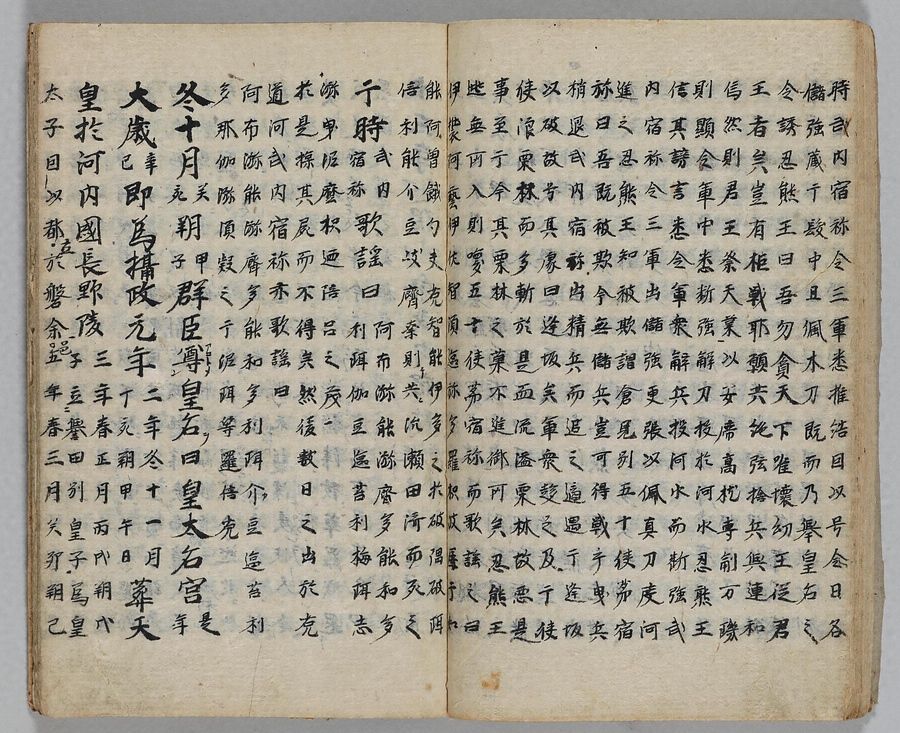 時武内宿祢令三軍悉推結因以号令曰各
儲強蔵于髮中且佩木刀既而乃舉皇后之
令誘忍熊王曰吾勿貪天下唯懷幼王從君
王者矣豈有柜戰耶顥共絶弦捨兵與連和
焉然則君王祭天業以安席高枕専制万璣
則顯令軍中悉断強解刀投於河水忍熊王
信其誥言悉令軍衆解兵投河水而断強武
内宿祢令三軍出儲強更張以佩真刀度河
進之忍熊王知被欺謂倉見別五十使茅宿
祢曰吾既被欺今無儲兵豈可得戰乎曳兵
稍退武内宿祢出精兵而追之適遇于逢坂
以破故号其處曰逢坂矣軍衆趍之及于使
使浪栗林而多斬於是血流溢栗林故悪是
事至于今其栗林之菓不進御所矣忍熊王
逃無所入則喚五十使茅宿祢而歌謡之曰
伊裝阿藝伊佐智須區祢多羅枳波
能阿曽餓勾夫克智能伊多之於破隅破珥
倍利能介豆岐齊秦則共沉瀬田済而死之
于時武内宿祢歌謡曰阿布弥能濟多能和多利珥伽豆區苔利梅珥志
弥卑泥麼枳廻陪呂之茂
於是探其屍而不得矣然後數日之出於克
道河武内宿祢亦歌謡曰
阿布弥能弥濟多能和多利珥介豆區苔利
多那伽弥須疑之于泥珥等羅倍克
冬十月癸亥朔甲子群臣尊皇后曰皇太后宮是年
大歳辛巳即為攝政元年二年冬十一月十亥朔甲午日葬天
皇於河内國長野陵三年春正月丙代朔代子立誉田別皇子為皇
太子因以都於磐余五年春三月癸卯朔己